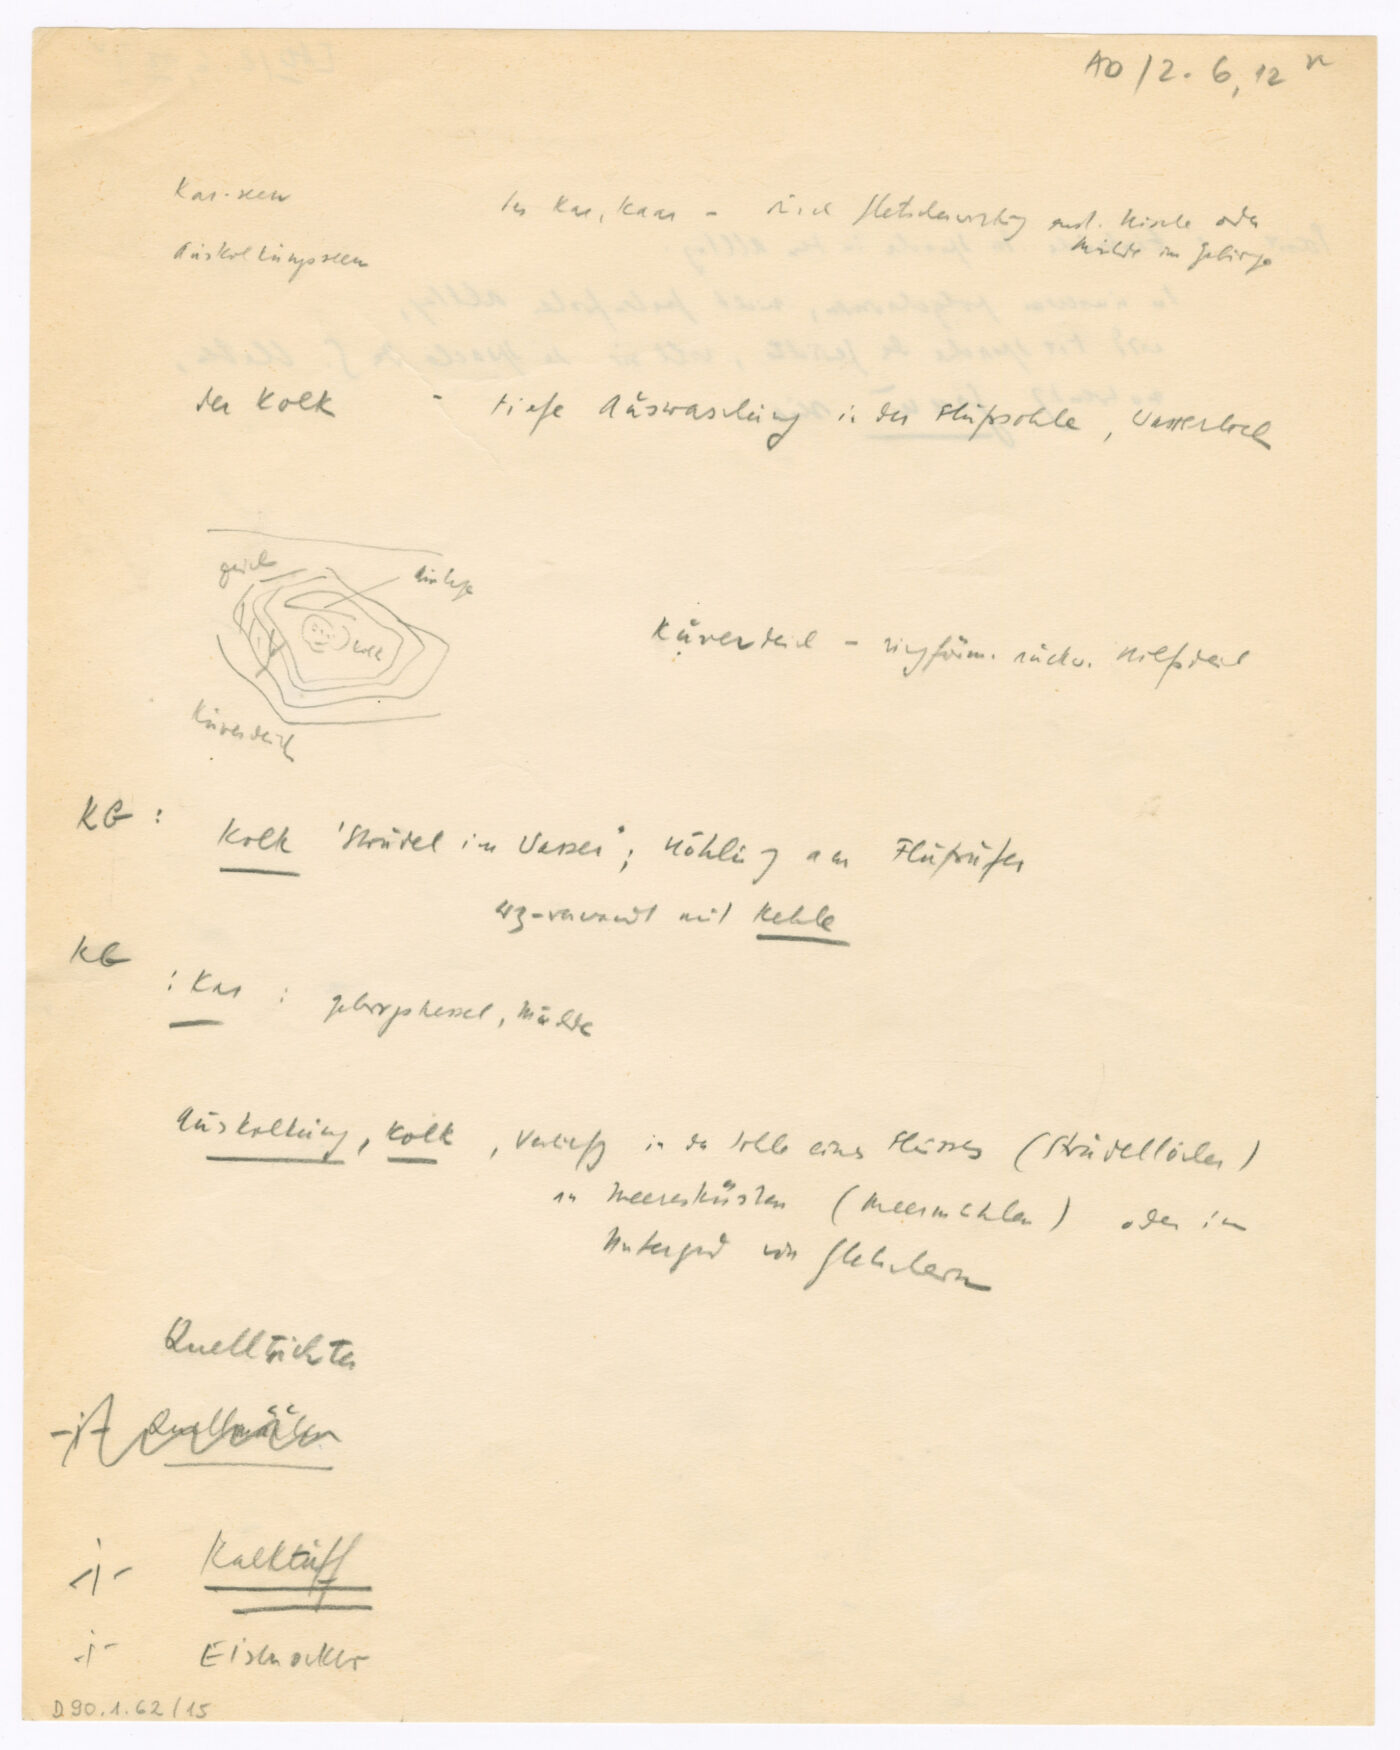 AD / 2. 6, 12 v
Kar-seen
Auskolkungsseen
das Kar, Kaar - durch Gletscherwirkung entst. Nische oder
Mulde im Gebirge
der Kolk - tiefe Auswaschung in der Flußsohle, Wasserloch
Deich
Kolk
Küverdeich
Küverdeich - ringförm. rückw. Hilfsdeich
KG :
Kolk 'Strudel im Wasser'; Höhlung am Flußufer
urg-verwandt mit Kehle
KG
: Kar : Gebirgskessel, Mulde
Auskolkung, Kolk, Vertiefg in der Sohle eines Flusses (Strudellöcher)
an Meeresküsten (Meermühlen) oder im
Untergrd von Gletschern
Quelltrichter
-i- Kalktuff
-i- Eisenocker
D90.1.62/15